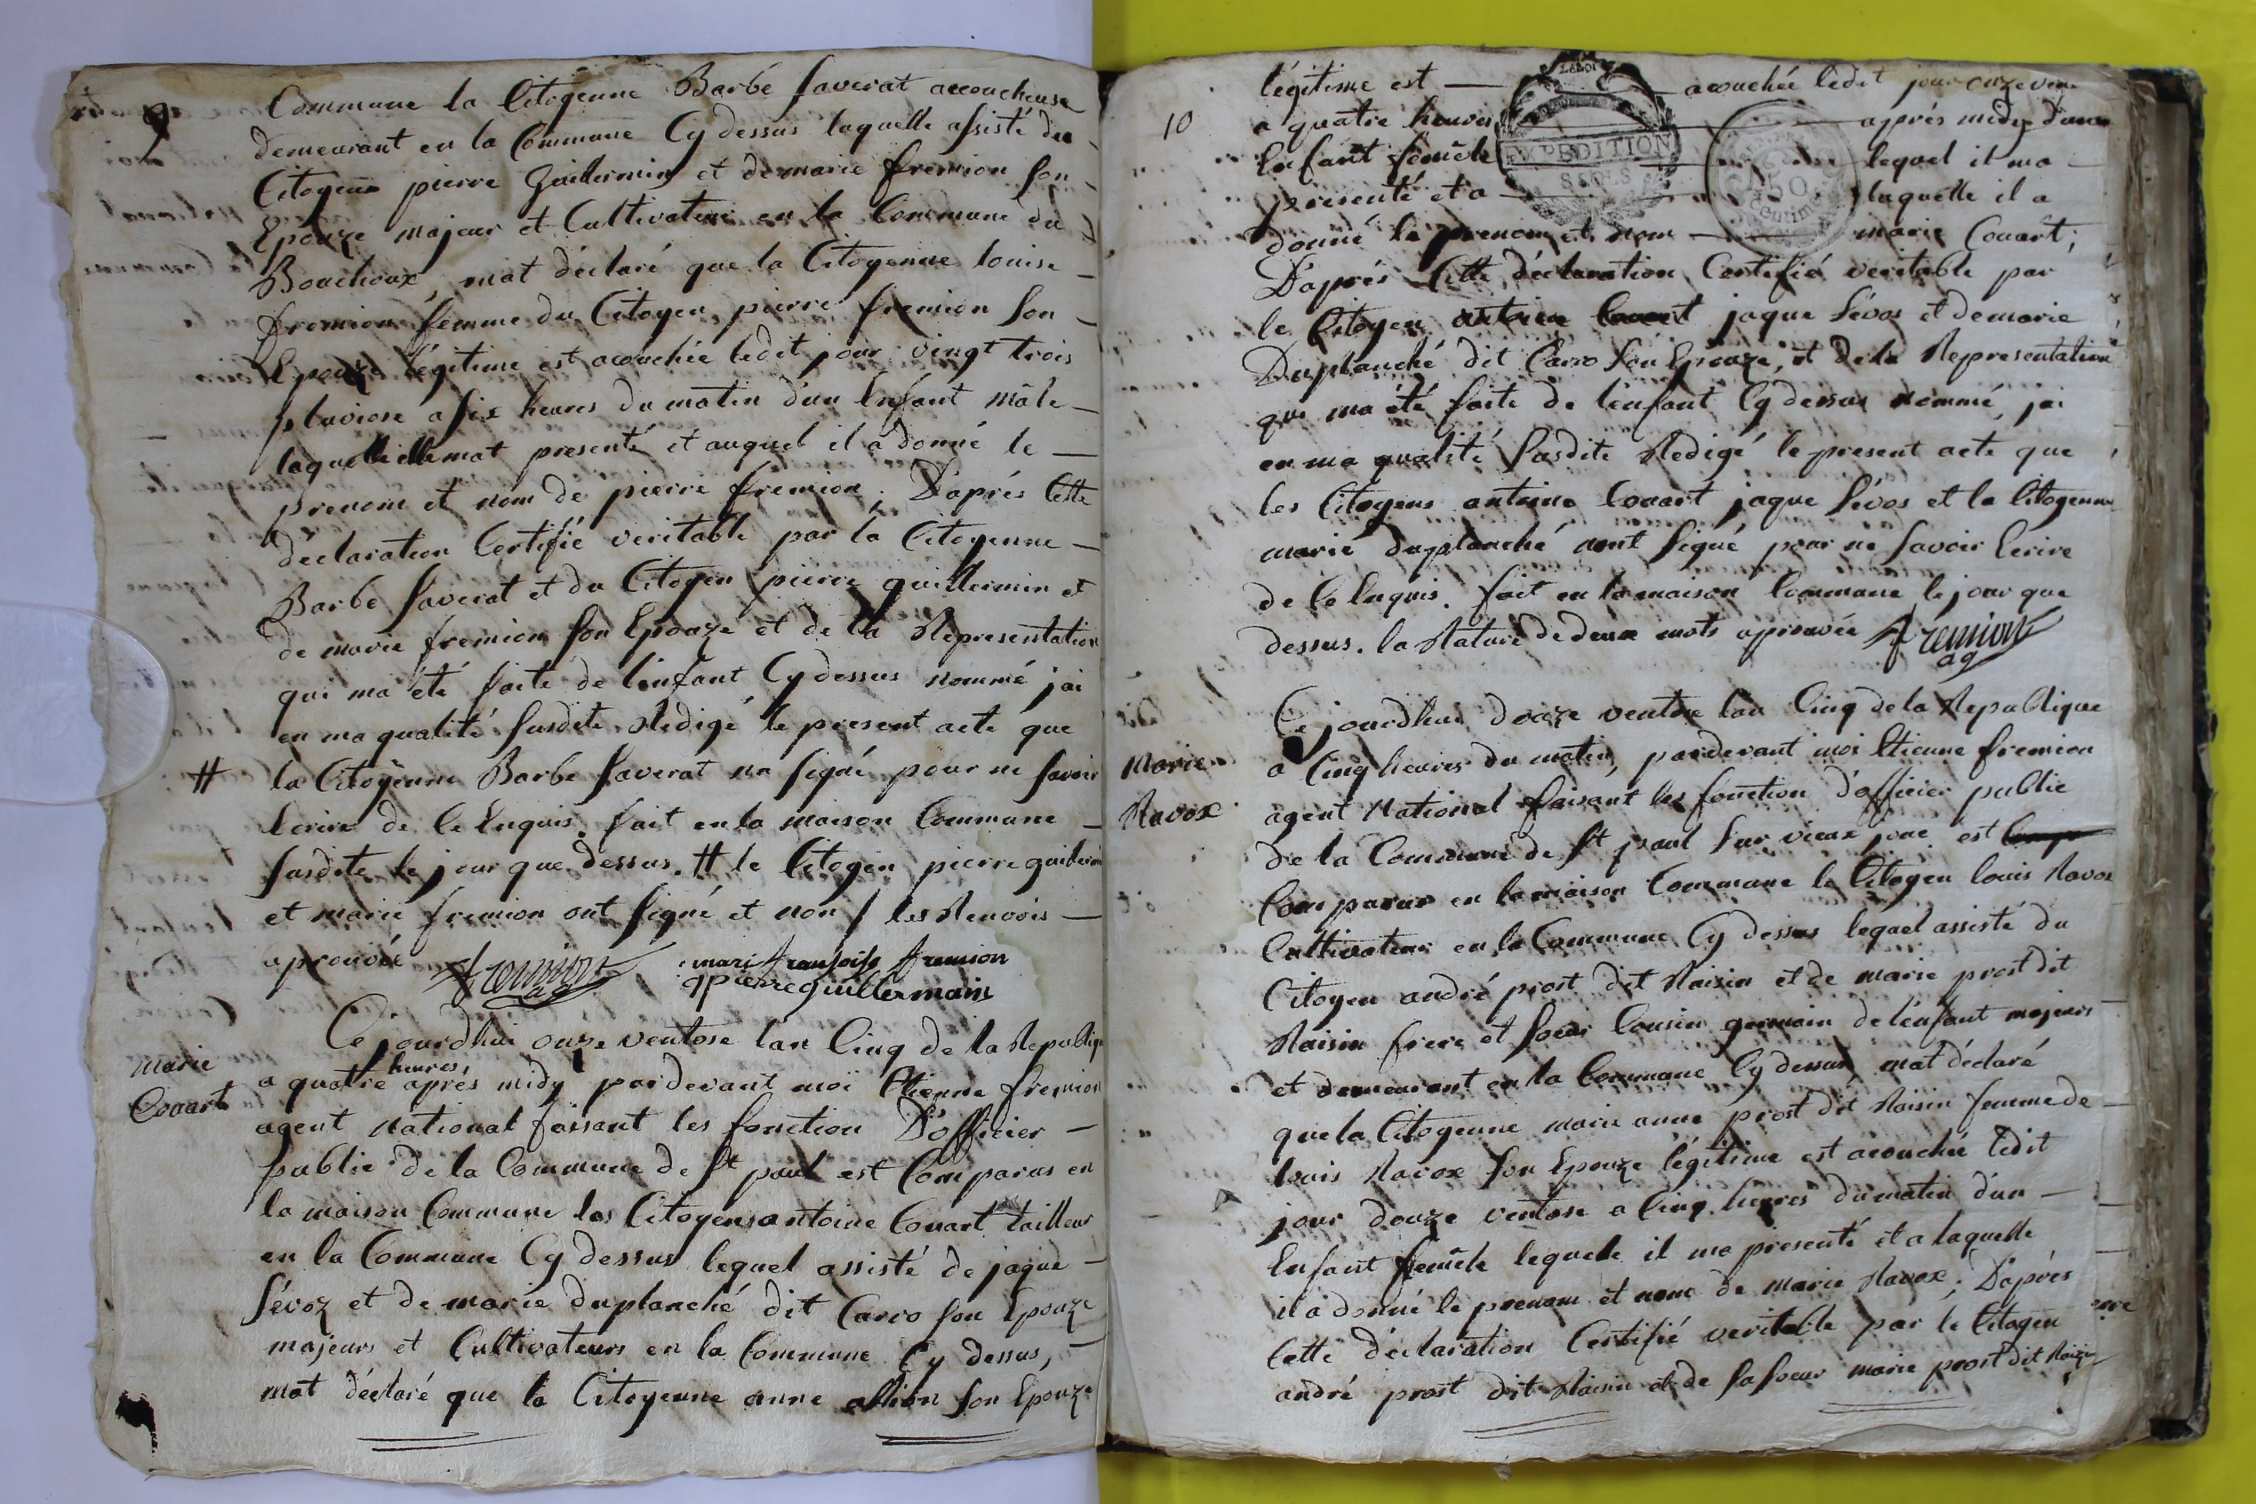 9
Commune la Citoyenne Barbé faverat accoucheuse
demeurant en la Commune Cy dessus laquelle assisté du
Citoyens pierre Guillermin et de marie fremion son
Epouze majeur et Cultivateur en la Commune du
Bouchoux, mat déclaré que la Citoyenne louise
fremion femme du Citoyen pierre fremion Son
Epouze légitime est acouchée ledit jour vingt trois
pluviose a six heures du matin d'un Enfant mâle
laquelle elle mat presenté et auquel il a donné le
prenom et nom de pierre fremion; D'aprés Cette
déclaration Certifié veritable par la Citoyenne
Barbe faverat et du Citoyen pierre guillermin et
de marie fremion son Epouze et de la Representation
qui ma été faite de l'enfant Cy dessus nommé jai
en ma qualité susdite Redigé le present acte que
# la Citoyenne Barbe faverat na signé pour ne savoir
Ecrire de Ce Enquis. fait en la maison Commune
susdite le jour que dessus. # le Citoyen pierre guillermin
et marie fremion ont signé et non / les Renvois
aprouvée fremion ag mari franfoise fremion
pierre guillermain
Ce jourdhui onze ventose lan Cinq de la Republique
marie
Couart
a quatre heures aprés midy pardevant moi Etienne fremion
agent National faisant les fonction D'officier
public de la Commune de St paul est Comparus en
la maison Commune les Citoyens antoine Couart tailleur
en la Commune Cy dessus lequel assisté de jaque
Sévoz et de marie duplanché dit Carro son Epouze
majeurs et Cultivateurs en la Commune Cy dessus,
mat déclaré que la Citoyenne anne allion son Epouze
10
légitime est acouchée ledit jour onze
a quatre heures aprés midy d'une
Enfant femele lequel il ma
presenté et a laquelle il a
donné le prenom et nom marie Couart;
D'aprés Cette déclaration Certifié veritable par
le Citoyen jaque Sévos et de marie
Duplanché dit Carro son Epouze, et de la Representation
qui ma été faite de l'enfant Cy dessus nommé, jai
en ma qualité susdite Redigé le present acte que
les Citoyens antoine Couart jaque Sévos et la Citoyenne
marie duplanché nont signé pour ne savoir Ecrire
de Ce Enquis. fait en la maison Commune le jour que
dessus. la Rature de deux mots aprouvée fremion
ag
EXPEDITION
5 SOLS
50
Centimes
Ce jourdhui douze ventose lan Cinq de la Republique
Marie
Ravox
a Cinq heures du matin, pardevant moi Etienne fremion
agent National faisant les fonction d'officier public
de la Commune de St paul sur vieux joue est
Comparus en la maison Commune le Citoyen louis Ravox
Cultivateur en la Commune Cy dessus lequel assisté du
Citoyen andré prost dit Raisin et de marie prost dit
Raisin frere et soeur Cousin germain de l'enfant majeurs
et demeurant en la Commune Cy dessus, mat déclaré
que la Citoyenne marie anne prost dit Raisin femme de
louis Ravox son Epouze légitime est acouchée ledit
jour douze ventose a Cinq heures du matin d'un
Enfant femele lequele il ma presenté et a laquelle
il a donné le prenom et nom de marie Ravox; D'aprés
Cette déclaration Certifié veritable par le Citoyen
andré prost dit Raisin et de sa soeur marie prost dit Raizin